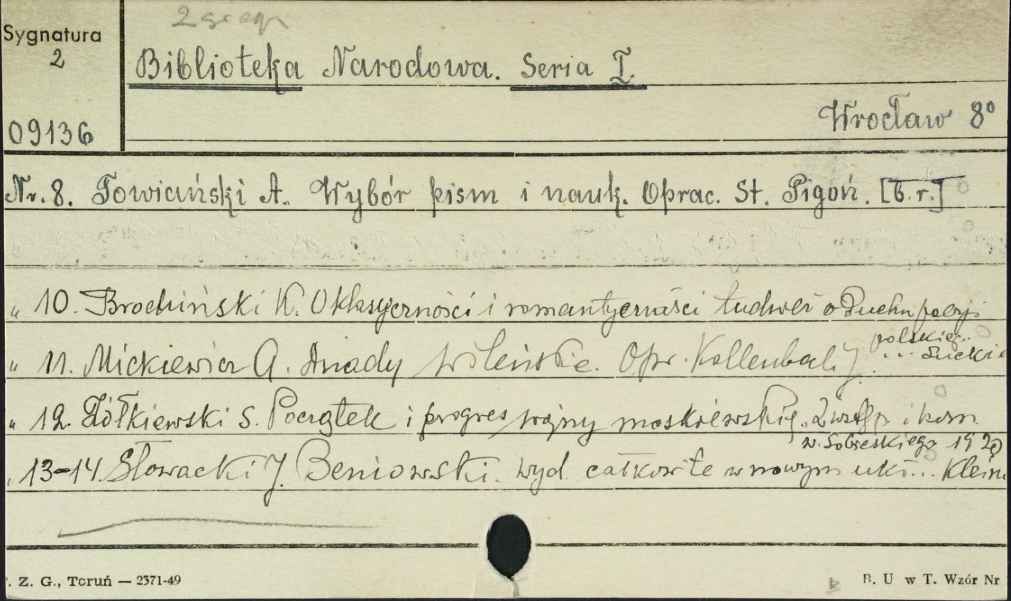 2 gr egz
Sygnatura
2
Biblioteka Narodowa. Seria I.
Wrocław 8°
09136
Nr. 8. Towiański A. Wybór pism i nauk. Oprac. St. Pigoń. [b. r.]
" 10. Brodziński K. O klasyczności i romantyczności tudzież o duchu poezji
polskiej
" 11. Mickiewicz A. Dziady wileńskie. Opr. Kallenbach J.
" 12. Żółkiewski S. Początek i progres wojny moskiewskiej. i kom
w. Sobieskiego 1920
" 13-14. Słowacki J. Beniowski. wyd. całkowite w nowym ukł... Klein
. Z. G., Toruń — 2371-49
B. U w T. Wzór Nr